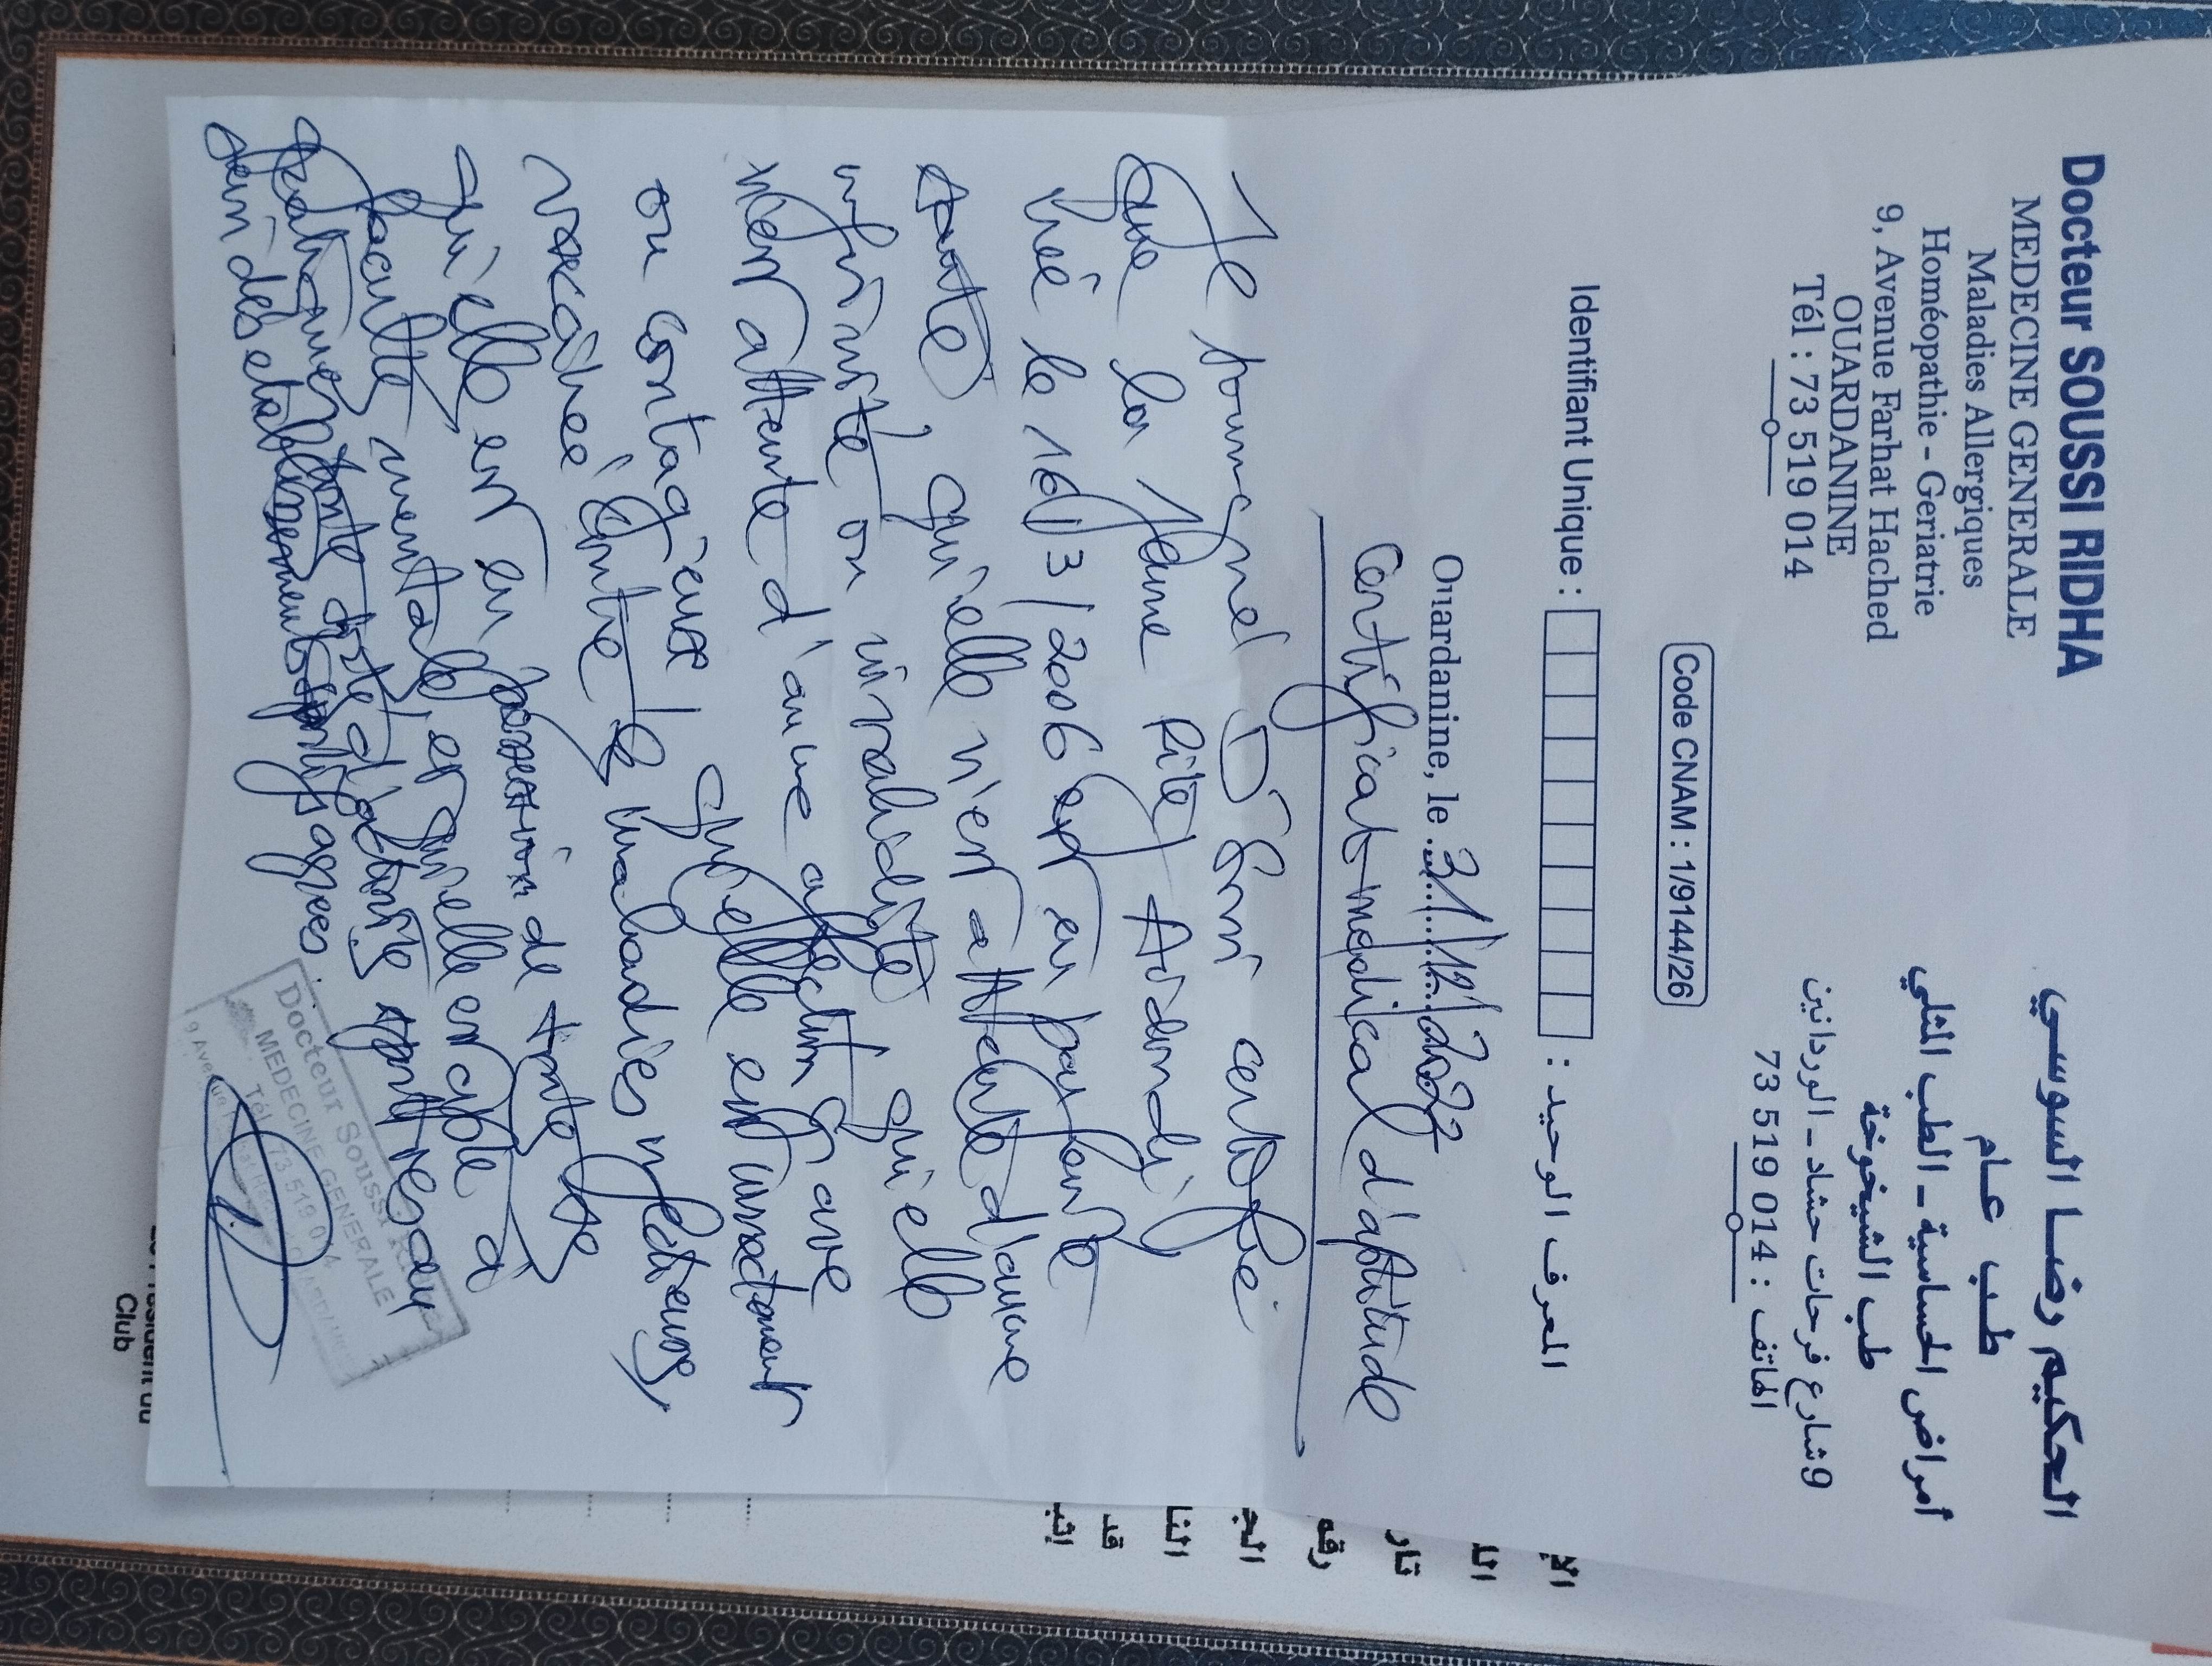 Docteur SOUSSI RIDHA
MEDECINE GENERALE
Maladies Allergiques
Homéopathie - Geriatrie
9, Avenue Farhat Hached
OUARDANINE
Tél : 73 519 014
الحكيم رضا السوسي
طب عام
أمراض الحساسية - الطب المثلي
طب الشيخوخة
9 شارع فرحات حشاد - الوردانين
الهاتف : 73 519 014
Code CNAM : 1/9144/26
Identifiant Unique : المعرف الوحيد :
Ouardanine, le 31/12/2022
Certificat medical d'aptitude
Je soussigné Dr certifie
que la
née le 16/3/2006 est en parfaite
santé, qu'elle n'est atteinte d'aucune
infirmité ou invalidité qu'elle
n'est atteinte d'aucune affection grave
ou contagieuse, qu'elle est
vaccinée contre les maladies infectieuses,
qu'elle est en possession de toute
faculté mentale, et qu'elle est apte à
pratiquer toute sorte d'activités
sein des etablissements agrees.
Docteur Soussi
MEDECINE GENERALE
Tél 73 519 014
9 Avenue
Club